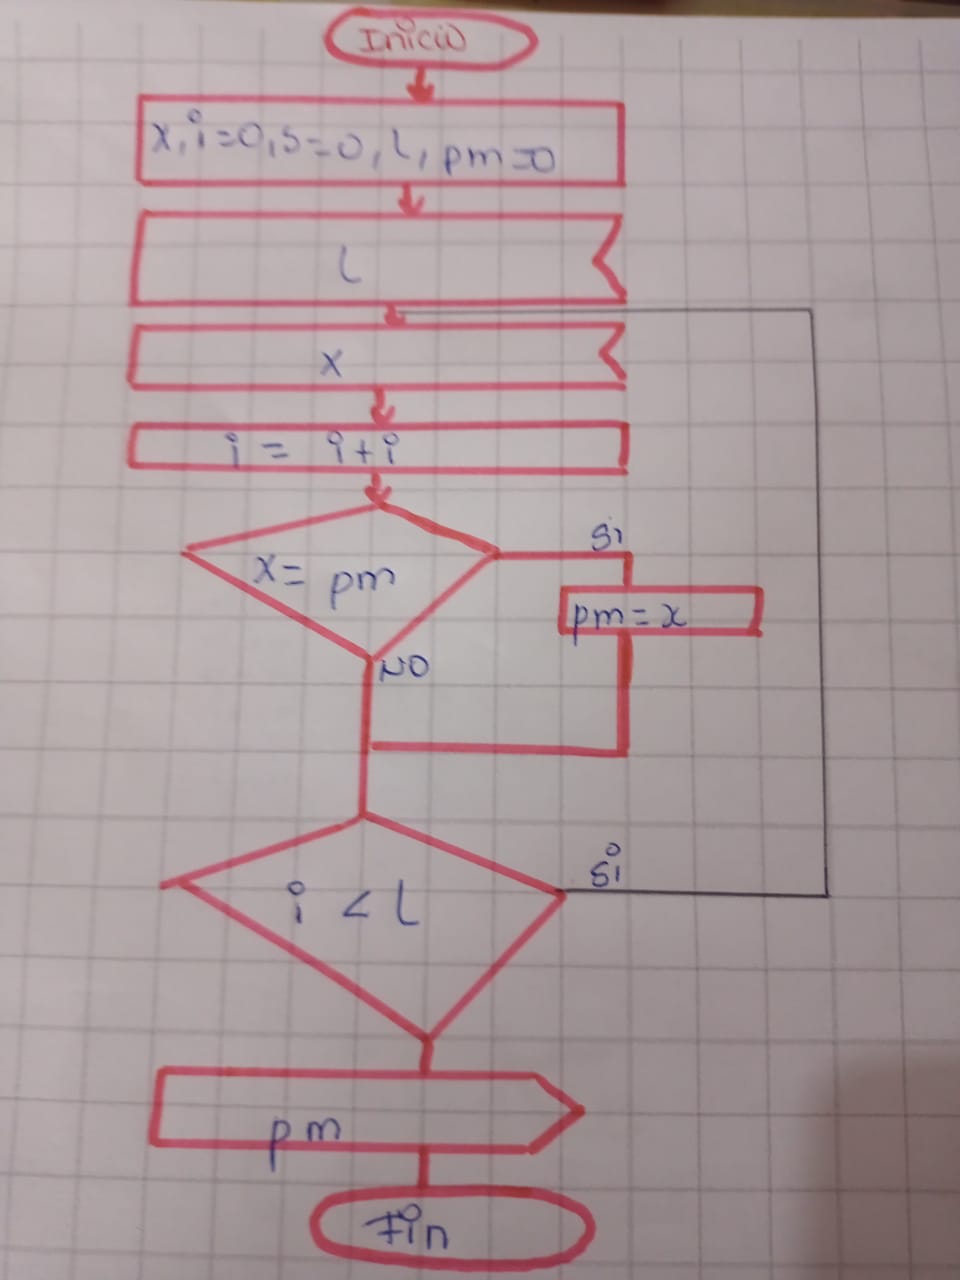 Inicio
x, i=0, s=0, L, pm=0
L
x
i = i+i
x= pm
si
pm = x
NO
i < L
si
pm
Fin